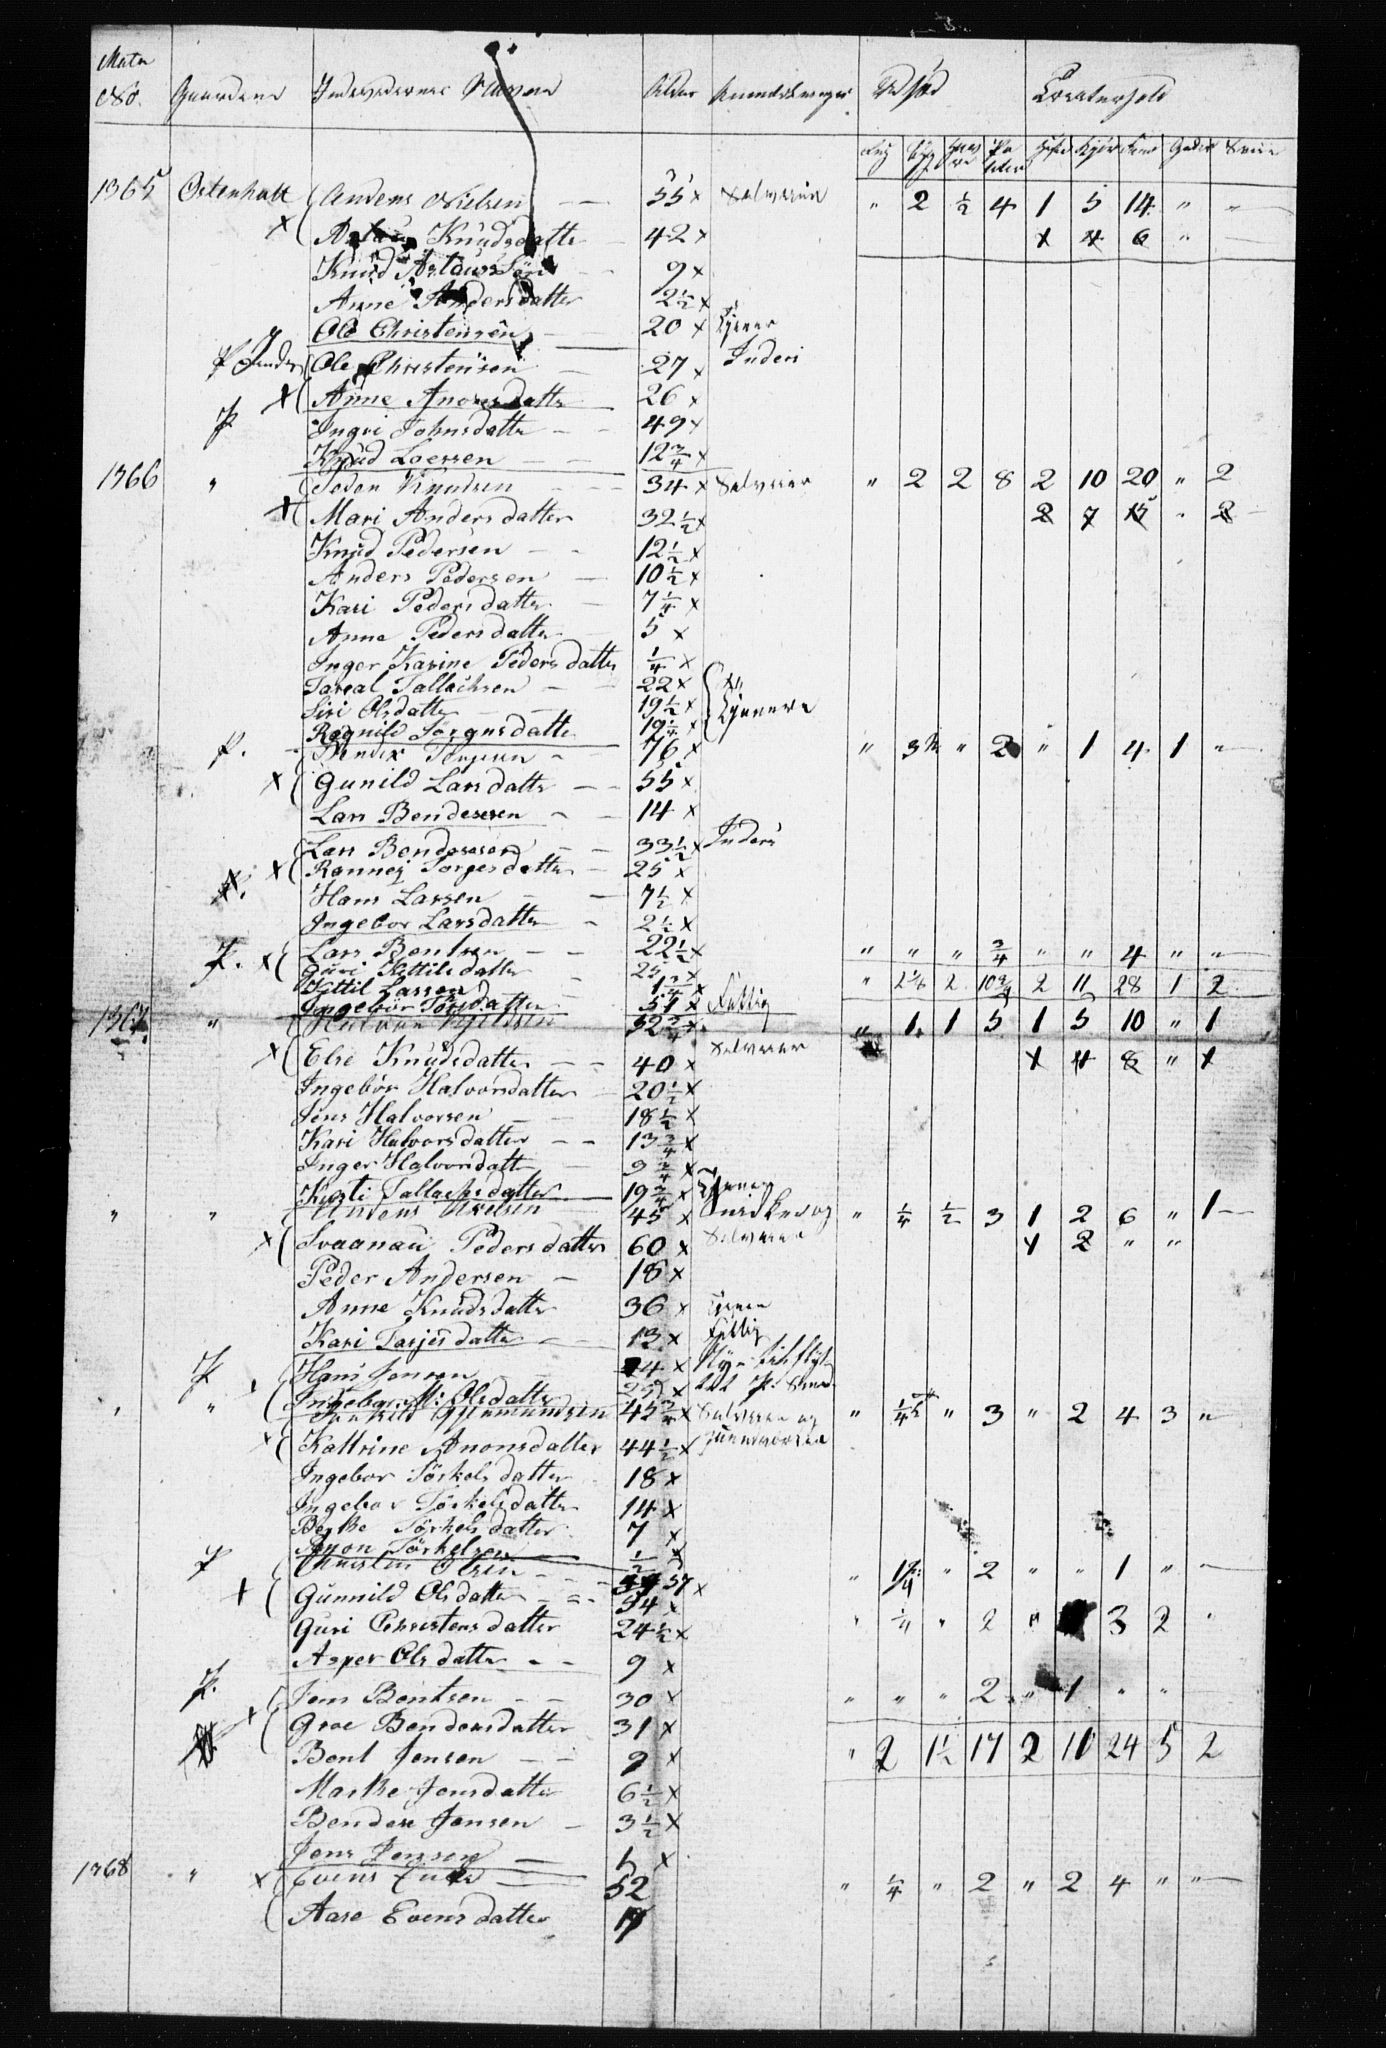 Matr No. Gaardene Individernes Navne Alder Anmerkninger Udsæd Creaturhold
Rug Byg Havre Po teter Heste Kjør Faar Geder Sviin
1365 Ostenhalt Anders Nielsen 55 x Selveier " 2 ½ 4 1 5 14 " "
x Knudsdatter 42 x x 4 6 "
Knud 9 x
Anne Andersdatter 2½ x
Ole Christensen 20 x Tjener
P Ole Christensen 27 x Inderst
x Anne 26 x
P Ingri Johnsdatter 49 x
Knud Loessen 12¾ x
1366 " Peder Knudsen 34 x Selveier " 2 2 8 2 10 20 " 2
x Mari Andersdatter 32½ x 2 7 15 " 2
Knud Pedersen 12½ x
Anders Pedersen 10½ x
Kari Pedersdatter 7¼ x
Anne Pedersdatter 5 x
Inger Karine Pedersdatter ¼ x
Tallachsen 22 x
Siri Olsdatter 19½ x Tjenere
Ragnild 19¼ x
P. 76 x " " 2 " 1 4 1 "
x Gunild Larsdatter 55 x
Lars Bendexsen 14 x
Lars Bendexsen 33½ x Inderst
x Ronnej Torgersdatter 25 x
Hans Larsen 7½ x
Ingebor Larsdatter 2½ x
P. x Lars Bentsen 22½ x " " " ¾ " " 4 " "
Guri Kittilsdatter 25 x " 2¼ 2 10¾ 2 11 28 1 2
Kittil Larsen 1¾ x
Ingebor 51 x Fattig
1367 " Halvor 52¾ x Selveier " 1 1 5 1 5 10 " 1
x Else Knudsdatter 40 x x 4 8 " x
Ingebor Halvorsdatter 20½ x
Jens Halvorsen 18½ x
Kari Halvorsdatter 13¾ x
Inger Halvorsdatter 9¾ x
Kirsti Tallachsdatter 19¾ x Tjener
" " Anders Nielsen 45 x Snedker og Selveier " ¼ ½ 3 1 2 6 " 1
x Svaanau Pedersdatter 60 x 2 " "
Peder Andersen 18 x
Anne Knudsdatter 36 x Tjener
Kari Tarjesdatter 13 x Fattig
P Hans Jensen 24 x
Ingebor M: Olsdatter 25 x
" " 45¾ x Selveier og " ¼ " 3 " 2 4 3 "
x Kattrine Anonsdatter 44½ x
Ingebor Törkelsdatter 18 x
Ingebor Törkelsdatter 14 x
Berthe Törkelsdatter 7 x
Anon Törkelsen ½ x
P Christen Olsen 57 x " ¼ " 2 " " 1 "
x Gunnild Olsdatter 54 x
Guri Christensdatter 24½ x " ¼ " 2 " 3 2 "
Asper Olsdatter 9 x
P. Jens Bentsen 30 x " " " 2 " 1 " "
x Groe Bendexsdatter 31 x
Bent Jensen 9 x " 2 1½ 17 2 10 24 5 2
Marthe Jensdatter 6½ x
Bendix Jensen 3½ x
Jens Jensen 1 x
1368 " x Evens 52 " ¼ " 2 " 2 4 " "
Aase Evensdatter